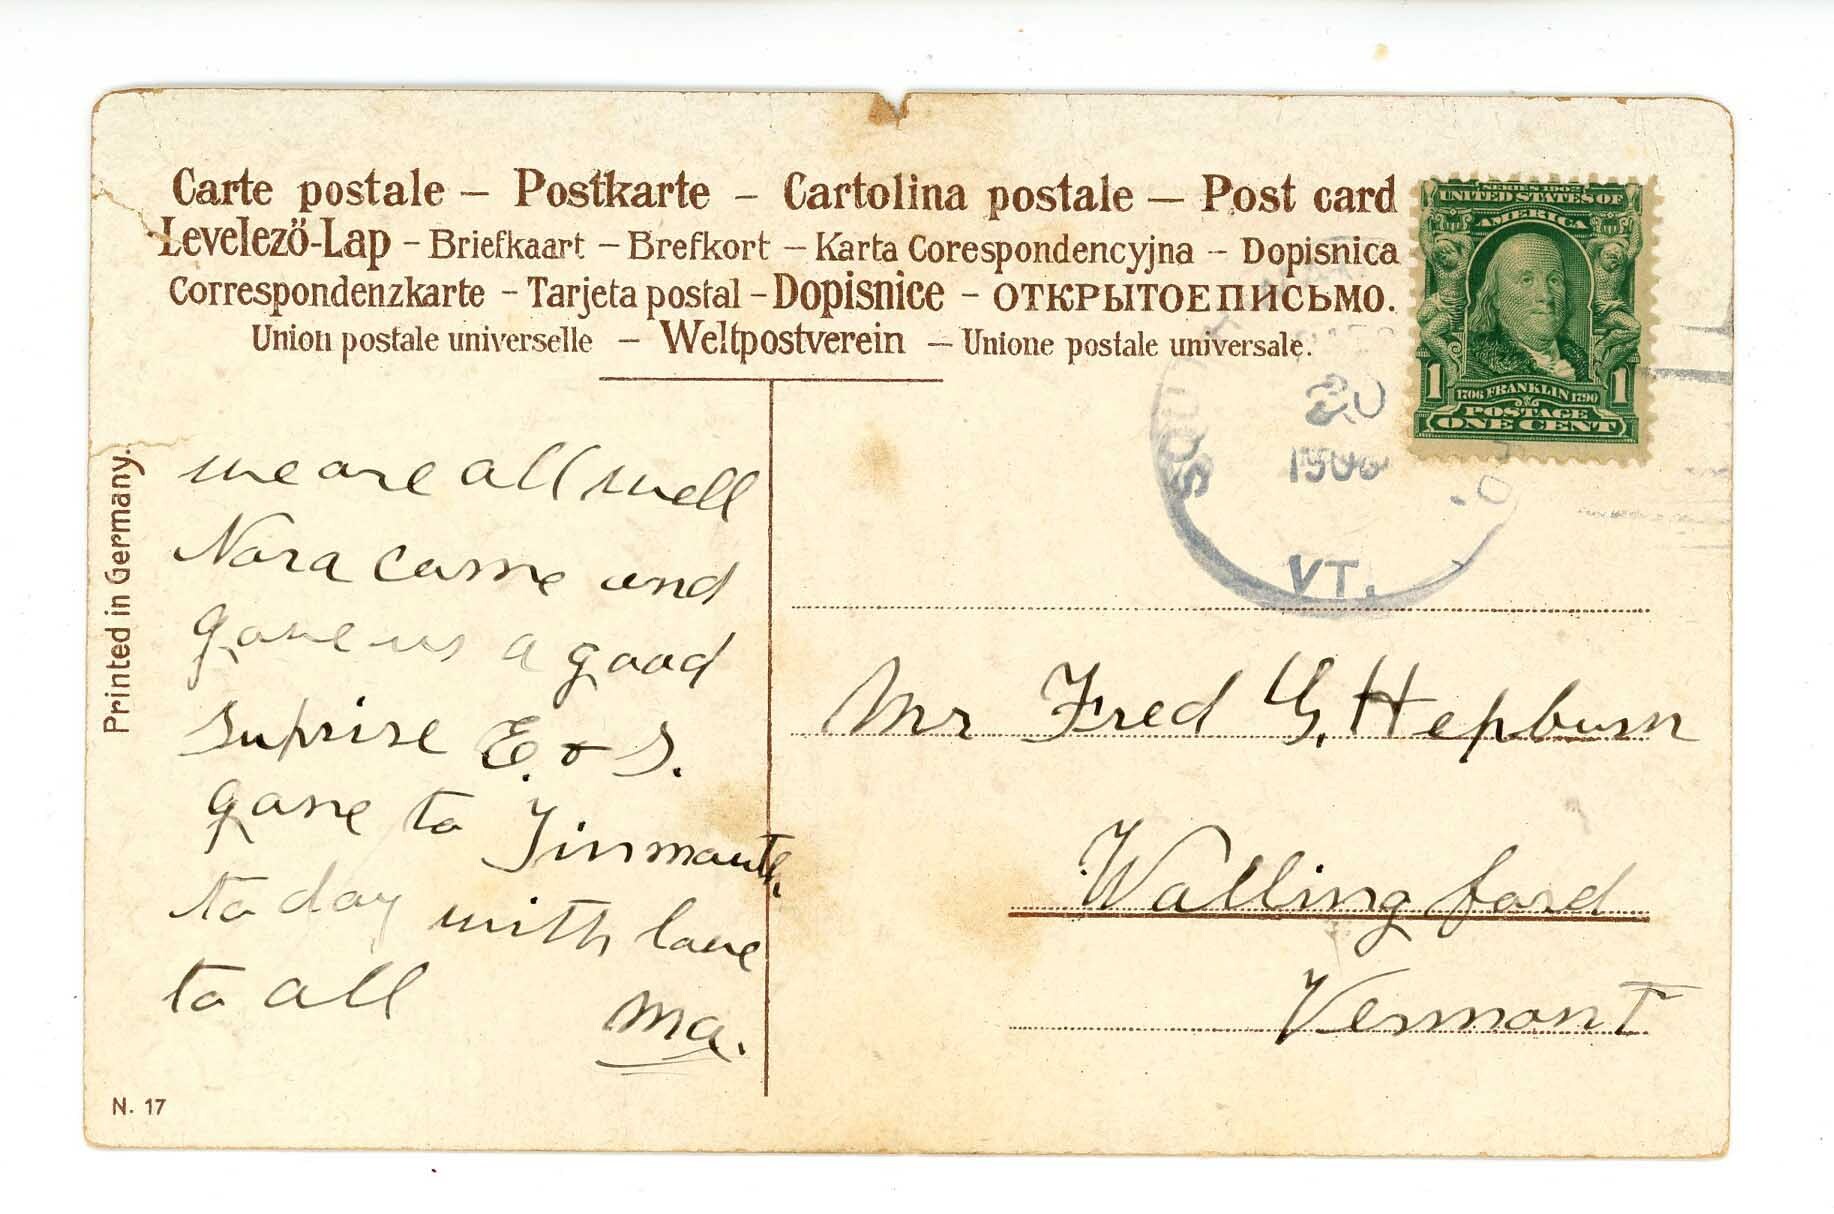 Carte postale – Postkarte – Cartolina postale – Post card
Levelező-Lap – Briefkaart – Brefkort – Karta Corespondencyjna – Dopisnica
Correspondenzkarte – Tarjeta postal – Dopisnice – ОТКРЫТОЕ ПИСЬМО.
Union postale universelle – Weltpostverein – Unione postale universale.
SERIES 1902
UNITED STATES OF
AMERICA
1 1706 FRANKLIN 1790 1
POSTAGE
ONE CENT
SOUTH
20
VT.
Printed in Germany.
we are all well
Nora came and
gave us a good
Suprise E. & S.
gone to Tinmouth.
to day with love
to all
Ma.
Mr Fred G. Hepburn
Wallingford
Vermont
N. 17